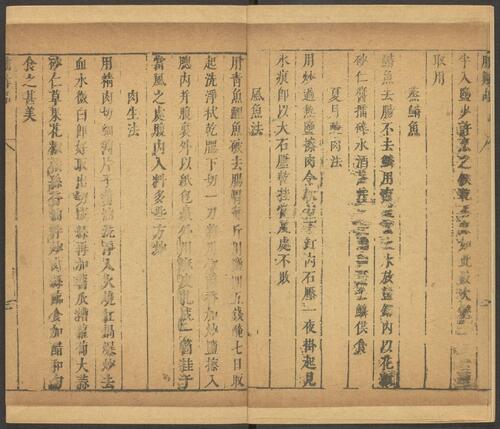 脯鮓
牛入鹽少許
取用
蒸鰣魚
鰣魚去腸不去鱗用布拭去血水放盪鑼內以花椒
砂仁醬擂碎水酒蔥 鱗供食
夏月醃肉法
用炒過熱鹽擦肉令軟勻下缸內石壓一夜掛起見
水痕即以大石壓乾掛當風處不敗
風魚法
用青魚鯉魚破去腸胃每斤用鹽四五錢醃七日取
起洗淨拭乾腮下切一刀 加炒鹽擦入
腮內并腹裏外以紙包裹外用麻皮扎成一箇挂于
當風之處腹內入料多些方妙
肉生法
用精肉切細薄片子醬油洗淨入火燒紅鍋爆炒去
血水微白即好取出切成絲再加醬瓜糟蘿蔔大蒜
砂仁草果花椒橘絲香油拌炒肉絲臨食加醋和勻
食之甚美